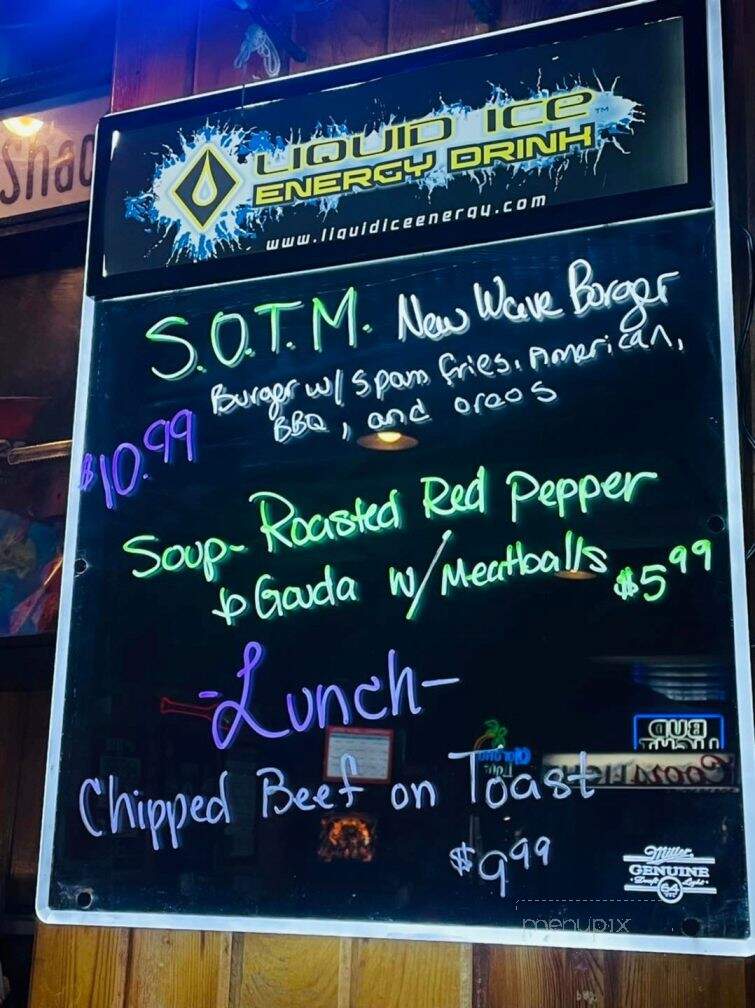 Shac
LIQUID ICE™
ENERGY DRINK
www.liquidiceenergy.com
S.O.T.M. New Wave Burger
Burger w/ Spam fries, American,
BBQ, and oreos
$10.99
Soup- Roasted Red Pepper
& Gouda w/ Meatballs $5.99
-Lunch-
Chipped Beef on Toast
$9.99
BUD
LIGHT
Corona
Light
Coors LIGHT
Miller
GENUINE
Draft Light
64
menupix